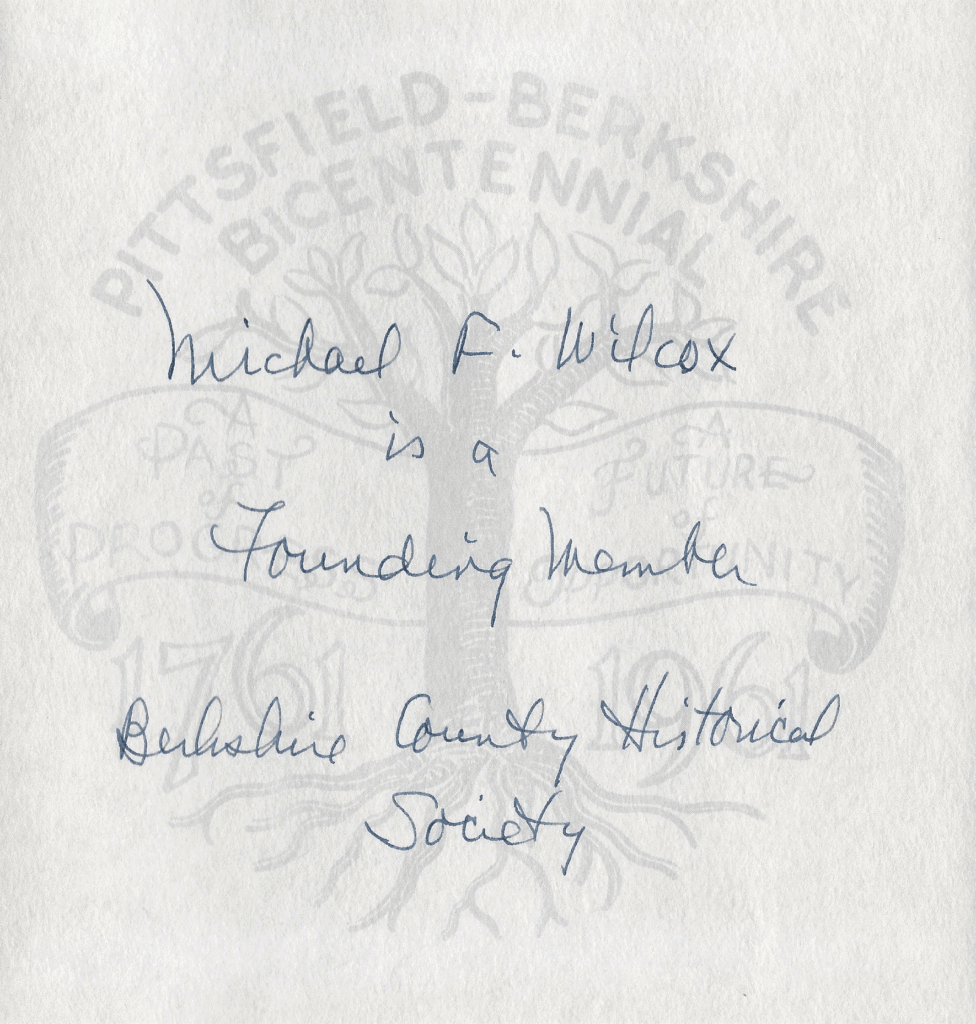 PITTSFIELD-BERKSHIRE
BICENTENNIAL
Michael F. Wilcox
A
PAST
of
PROGRESS
A
FUTURE
of
OPPORTUNITY
is a
Founding Member
1761 1961
Berkshire County Historical
Society